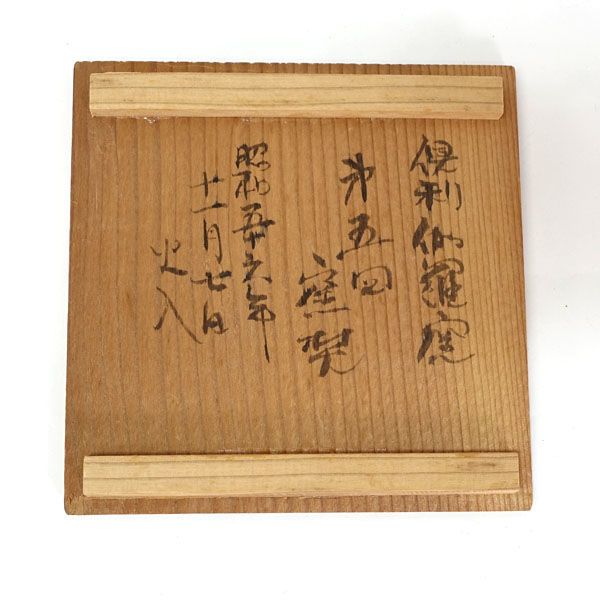 倶利伽羅窯
第五回
窯製
昭和五十六年
十一月七日
火入